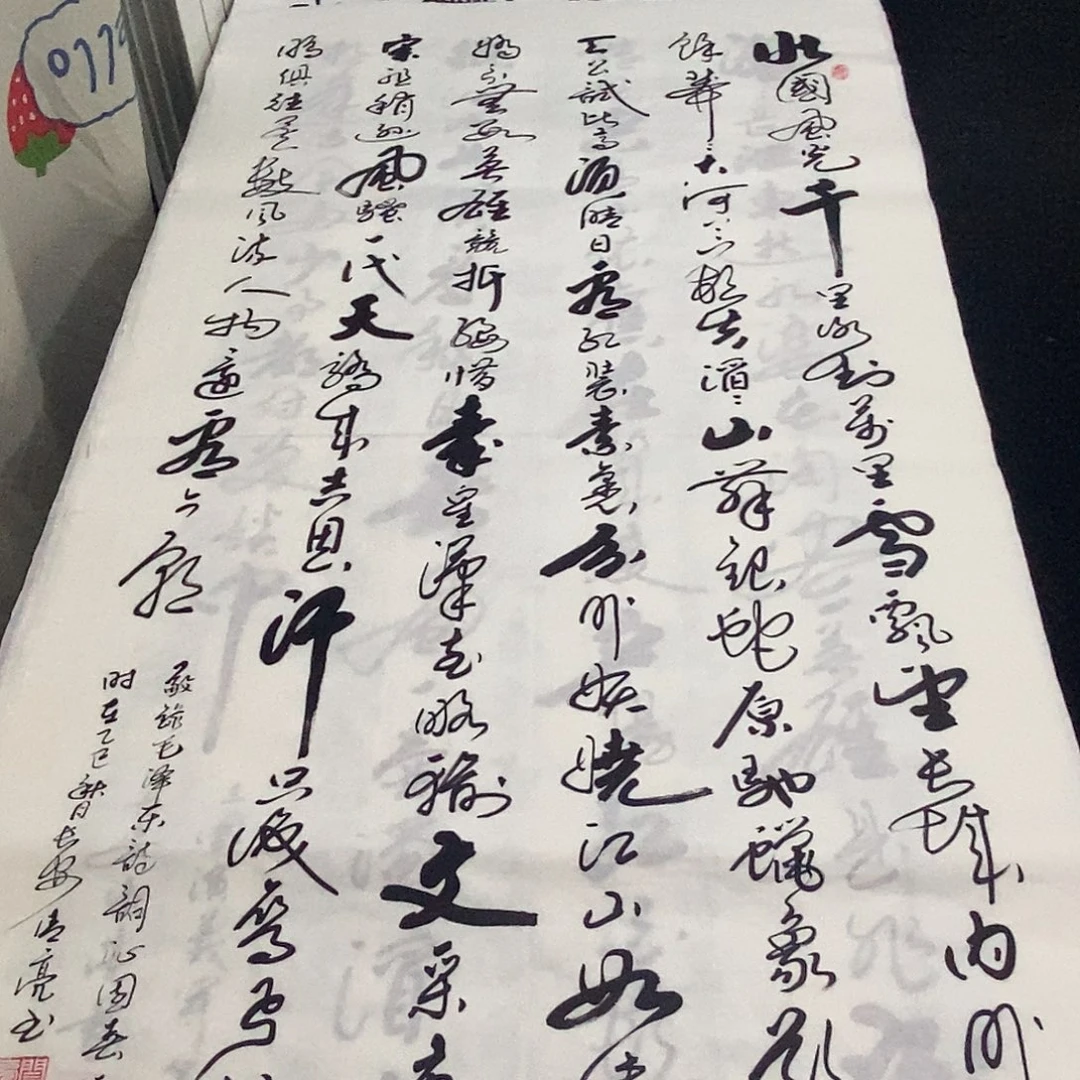 北國風光千里冰封萬里雪飄望長城内外
餘莽〻大河上下頓失滔〻山舞銀蛇原馳蠟象欲
天公試比高須晴日看紅装素裹分外妖嬈江山如此
嬌引無數英雄競折腰惜秦皇漢武略輸文采
宋祖稍遜風騷一代天驕成吉思汗只識彎弓
鵰俱往矣數風流人物還看今朝
敬錄毛泽东詩詞沁园春
时在乙巳秋月长安清亮书